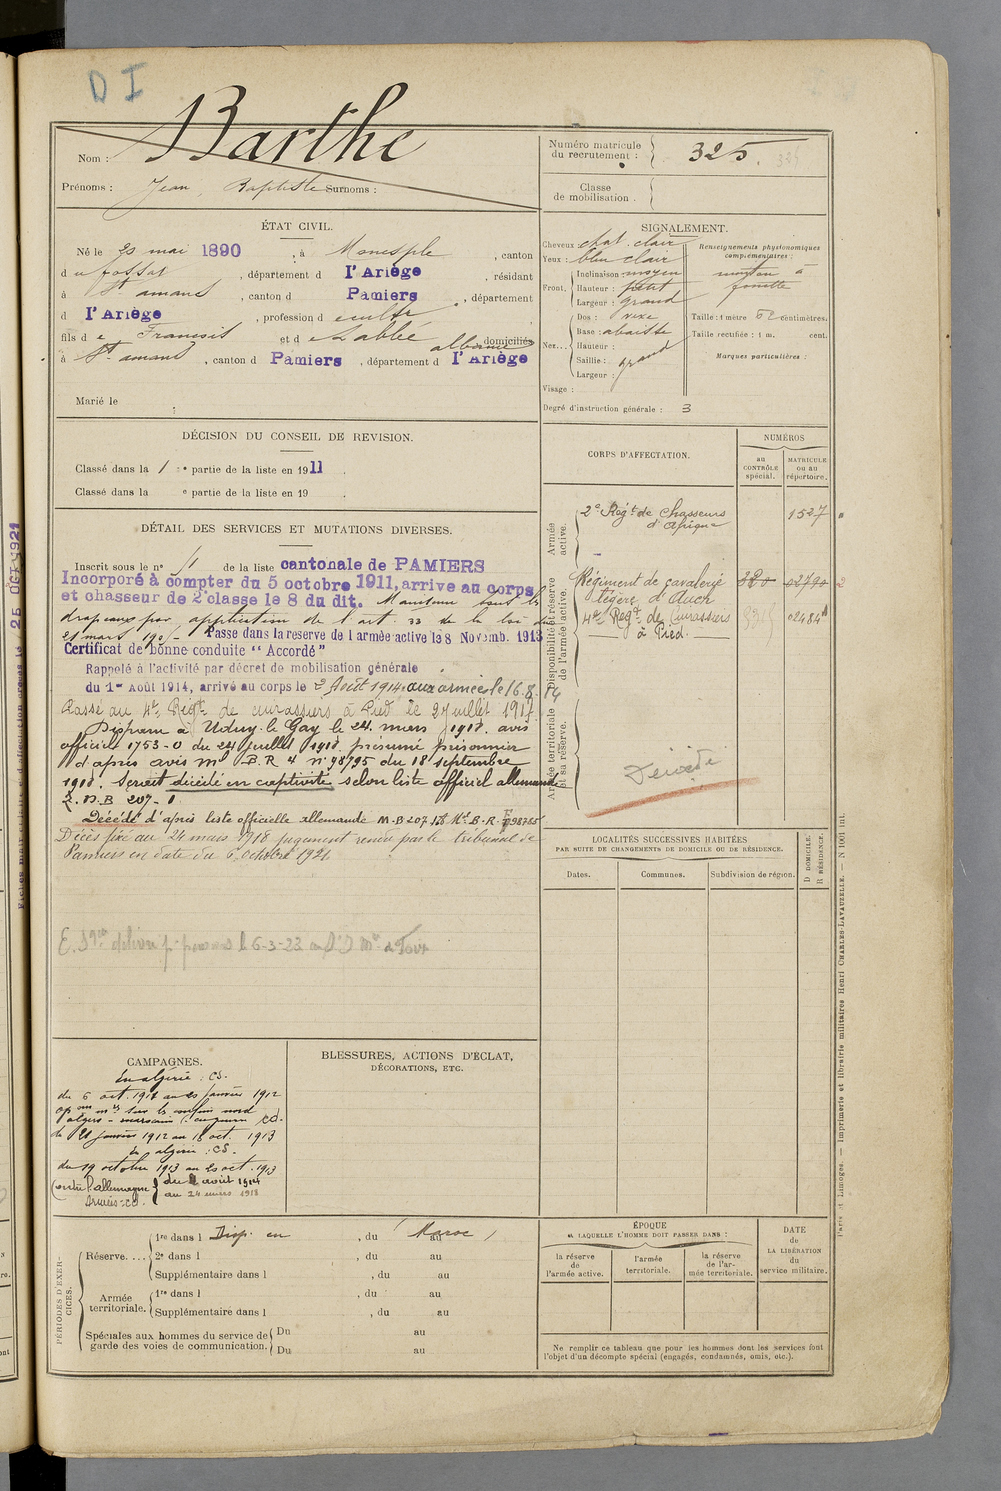 D I
Barthe
Nom :
Prénoms : Jean, Baptiste Surnoms :
Numéro matricule du recrutement : 325
Classe de mobilisation .
ÉTAT CIVIL.
Né le 20 mai 1890, à Monesple, canton
du fossat, département d l'Ariège, résidant
à St amans, canton d Pamiers, département
d l'Ariège, profession d cultr
fils de François et de Lablée albanie domiciliés
à St amans, canton d Pamiers, département d l'Ariège
Marié le
SIGNALEMENT.
Cheveux chat. clair
Yeux : bleu clair
Front. Inclinaison moyen
Hauteur : petit
Largeur : grand
Nez... Dos : vexe
Base : abaissé
Hauteur :
Saillie : grand
Largeur :
Visage :
Renseignements physionomiques complémentaires :
menton à
fossette
Taille : 1 mètre 62 centimètres.
Taille rectifiée : 1 m. cent.
Marques particulières :
Degré d'instruction générale : 3
DÉCISION DU CONSEIL DE REVISION.
Classé dans la 1re partie de la liste en 1911.
Classé dans la e partie de la liste en 19 .
DÉTAIL DES SERVICES ET MUTATIONS DIVERSES.
Inscrit sous le n° 11 de la liste cantonale de PAMIERS
Incorporé à compter du 5 octobre 1911, arrive au corps
et chasseur de 2e classe le 8 du dit. Maintenu sous les
drapeaux par application de l'art. 33 de la loi du
21 mars 1905 - Passe dans la reserve de l armée active le 8 Novemb. 1913
Certificat de bonne conduite "Accordé"
Rappelé à l'activité par décret de mobilisation générale
du 1er Août 1914, arrivé au corps le 2 Août 1914. aux armées le 16.8.14
Passé au 4e Régt de cuirassiers à Pied le 2 juillet 1917.
Disparu à Uduy. le Gay le 24 mars 1918. avis
officiel 1753-O du 24 juillet 1918. présumé prisonnier
d'après avis ml B.R 4 n° 98795 du 18 septembre
1918. Serait décédé en captivité selon liste officiel allemande
M.B 207-1
Décédé d'après liste officielle allemande M.B 207
Décès fixé au 24 mars 1918 jugement rendu par le tribunal de
Pamiers en date du 6 octobre 1921
CORPS D'AFFECTATION.
NUMÉROS
au CONTRÔLE spécial.
MATRICULE ou au répertoire.
Armée active.
2e Régt de Chasseurs d'Afrique 1527
Disponibilité et réserve de l'armée active.
Régiment de cavalerie légère d'Auch 320 02790
4e Régt de Cuirassiers à Pied. 02484
Armée territoriale et sa réserve.
Décédé
LOCALITÉS SUCCESSIVES HABITÉES
PAR SUITE DE CHANGEMENTS DE DOMICILE OU DE RÉSIDENCE.
Dates.
Communes.
Subdivision de région.
D DOMICILE.
R RÉSIDENCE.
CAMPAGNES.
En algérie : CS.
du 6 oct. 1911 au 20 janvier 1912
du 21 janvier 1912 au 18 oct. 1913
En algérie : CS.
du 19 octobre 1913 au 20 oct. 1913
Contre l'allemagne du 2 août 1914
Armées : CD. au 24 mars 1918
BLESSURES, ACTIONS D'ÉCLAT,
DÉCORATIONS, ETC.
PÉRIODES D'EXERCICES.
Réserve.... 1re dans l Disp. en, du (Maroc) au
2e dans l , du au
Supplémentaire dans l , du au
Armée territoriale. 1re dans l , du au
Supplémentaire dans l , du au
Spéciales aux hommes du service de garde des voies de communication. Du au
Du au
ÉPOQUE
A LAQUELLE L'HOMME DOIT PASSER DANS :
la réserve de l'armée active.
l'armée territoriale.
la réserve de l'armée territoriale.
DATE
DE LA LIBÉRATION
du service militaire.
Ne remplir ce tableau que pour les hommes dont les services font
l'objet d'un décompte spécial (engagés, condamnés, omis, etc.).
Paris et Limoges. — Imprimerie et librairie militaires Henri CHARLES-LAVAUZELLE.
25 OCT 1921